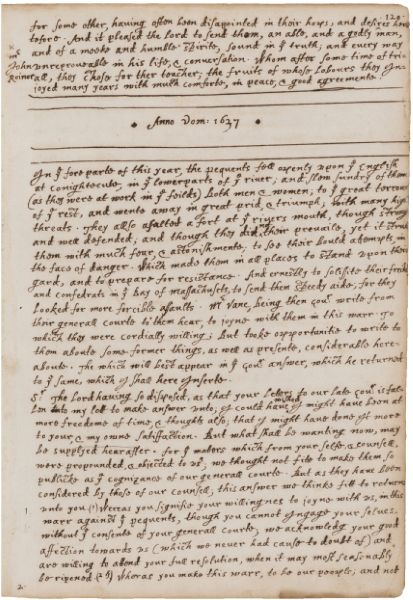 120.
for some other, having often been disapointed in their hops, and desires heretofore. And it pleased the lord to send them, an able, and a godly man,
and of a meeke and humble spirite, sound in yᵉ truth, and every way
unreproveable in his life, & conversation. Whom after some time of tri-
all, they Chose for ther teacher; the fruits of whose labours they In-
joyed many years with much comforte, in peace, & good agreemente.
mʳ
John
Reiner
Anno Dom: 1637
In yᵉ fore parte of this year, the pequents fell openly upon yᵉ English
at Conightecute, in yᵉ lower parts of yᵉ river; and slew sundry of them
(as they were at work in yᵉ feilds) both men & women; to yᵉ great terrour
of yᵉ rest; and wente away in great prid, & triumph, with many high
threats. They allso assalted a fort at yᵉ rivers mouth, though strong
and well defended; and though they did not their prevaile, yet it struk
them with much fear, & astonishmente; to see their bould attempts in
the face of danger. Which made them in all places to stand upon their
gard, and to prepare for resistance. And ernestly to solissite their freinds
and confederats in yᵉ Bay of Massachusets, to send them speedy aide; for they
looked for more forcible assaults. Mʳ Vane, being then Govʳ write from
their generall courte to them hear, to joyne with them in this warr. To
which they were cordially willing; But tooke opportunitie to write to
them aboute some former things, as well as presente, considerable here-
aboute. The which will best appear in yᵉ Govʳ answer, which he returned
to yᵉ same, which I shall here Inserte.
Sʳ: The Lord having so disposed, as that your letters to our late Govʳ is fal-
len into my lott to make answer unto; I could have wished I might have been at
more freedome of time, & thoughts allso; that I might have done it more
to your, & my owne satisfaction. But what shall be wanting now, may
be supplyed hearafter. for yᵉ maters which from your selfe, & counsell,
were propounded, & objected to us; we thought not fitte to make them so
publicke as yᵉ cognizance of our generall courte. But as they have been
considered by those of our counsell, this answer we thinke fitt to returne
unto you (1) Wereas you signifie your willingnes to joyne with us, in this
warr against yᵉ pequents, though you cannot Ingage your selves
without yᵉ consente of your generall courte; we acknowledg your good
affection towards us (which we never had cause to doubt of) and
are willing to attend your full resolution, when it may most seasonably
be ripened (2ly) Wheras you make this warr, to be our peopls; and not
1.
2.